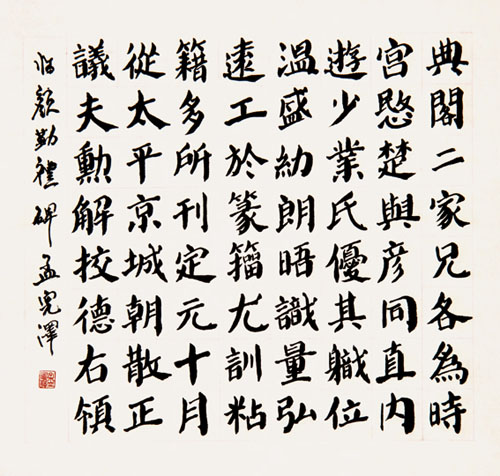 典閣二家兄各為時
宮愍楚與彦同直内
遊少業氏優其職位
溫盛幼朗晤識量弘
遠工於篆籀尤訓粘
籍多所刊定元十月
從太平京城朝散正
議夫勳解挍德右領
临颜勤禮碑孟宪澤